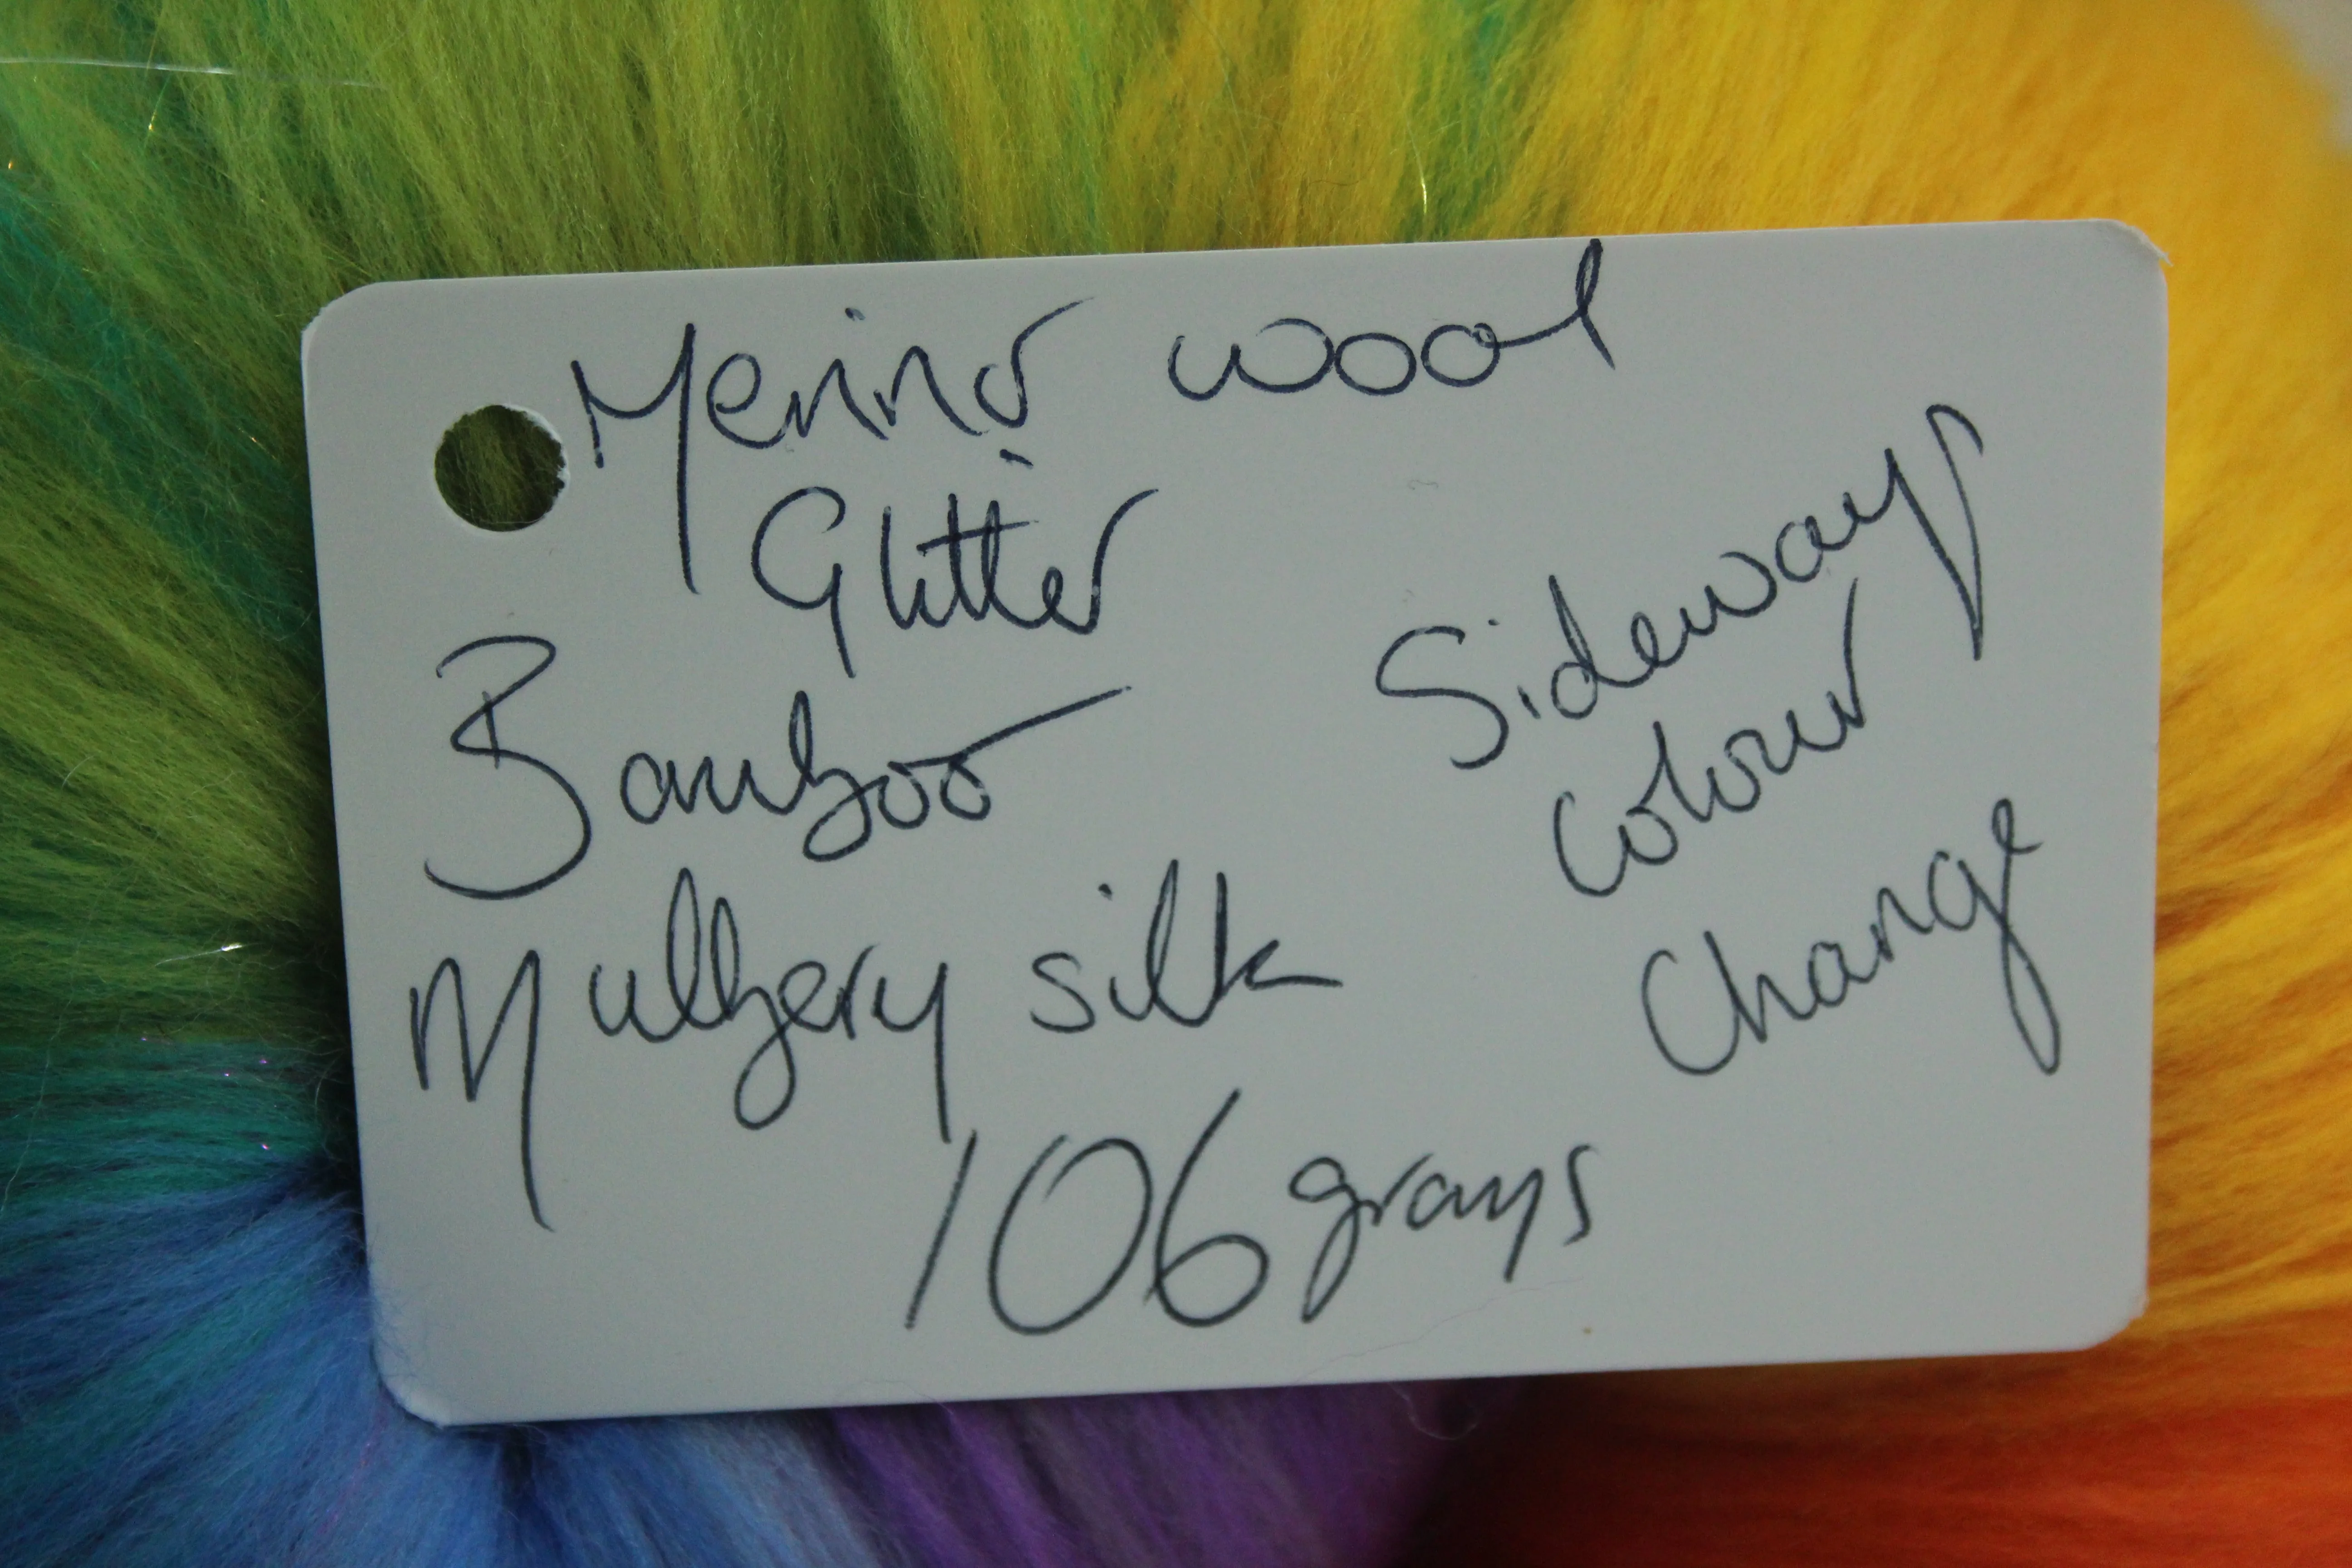 Merino wool
Glitter
Bamboo
Mulbery silk
106 grams
Sideways
Colour
Change